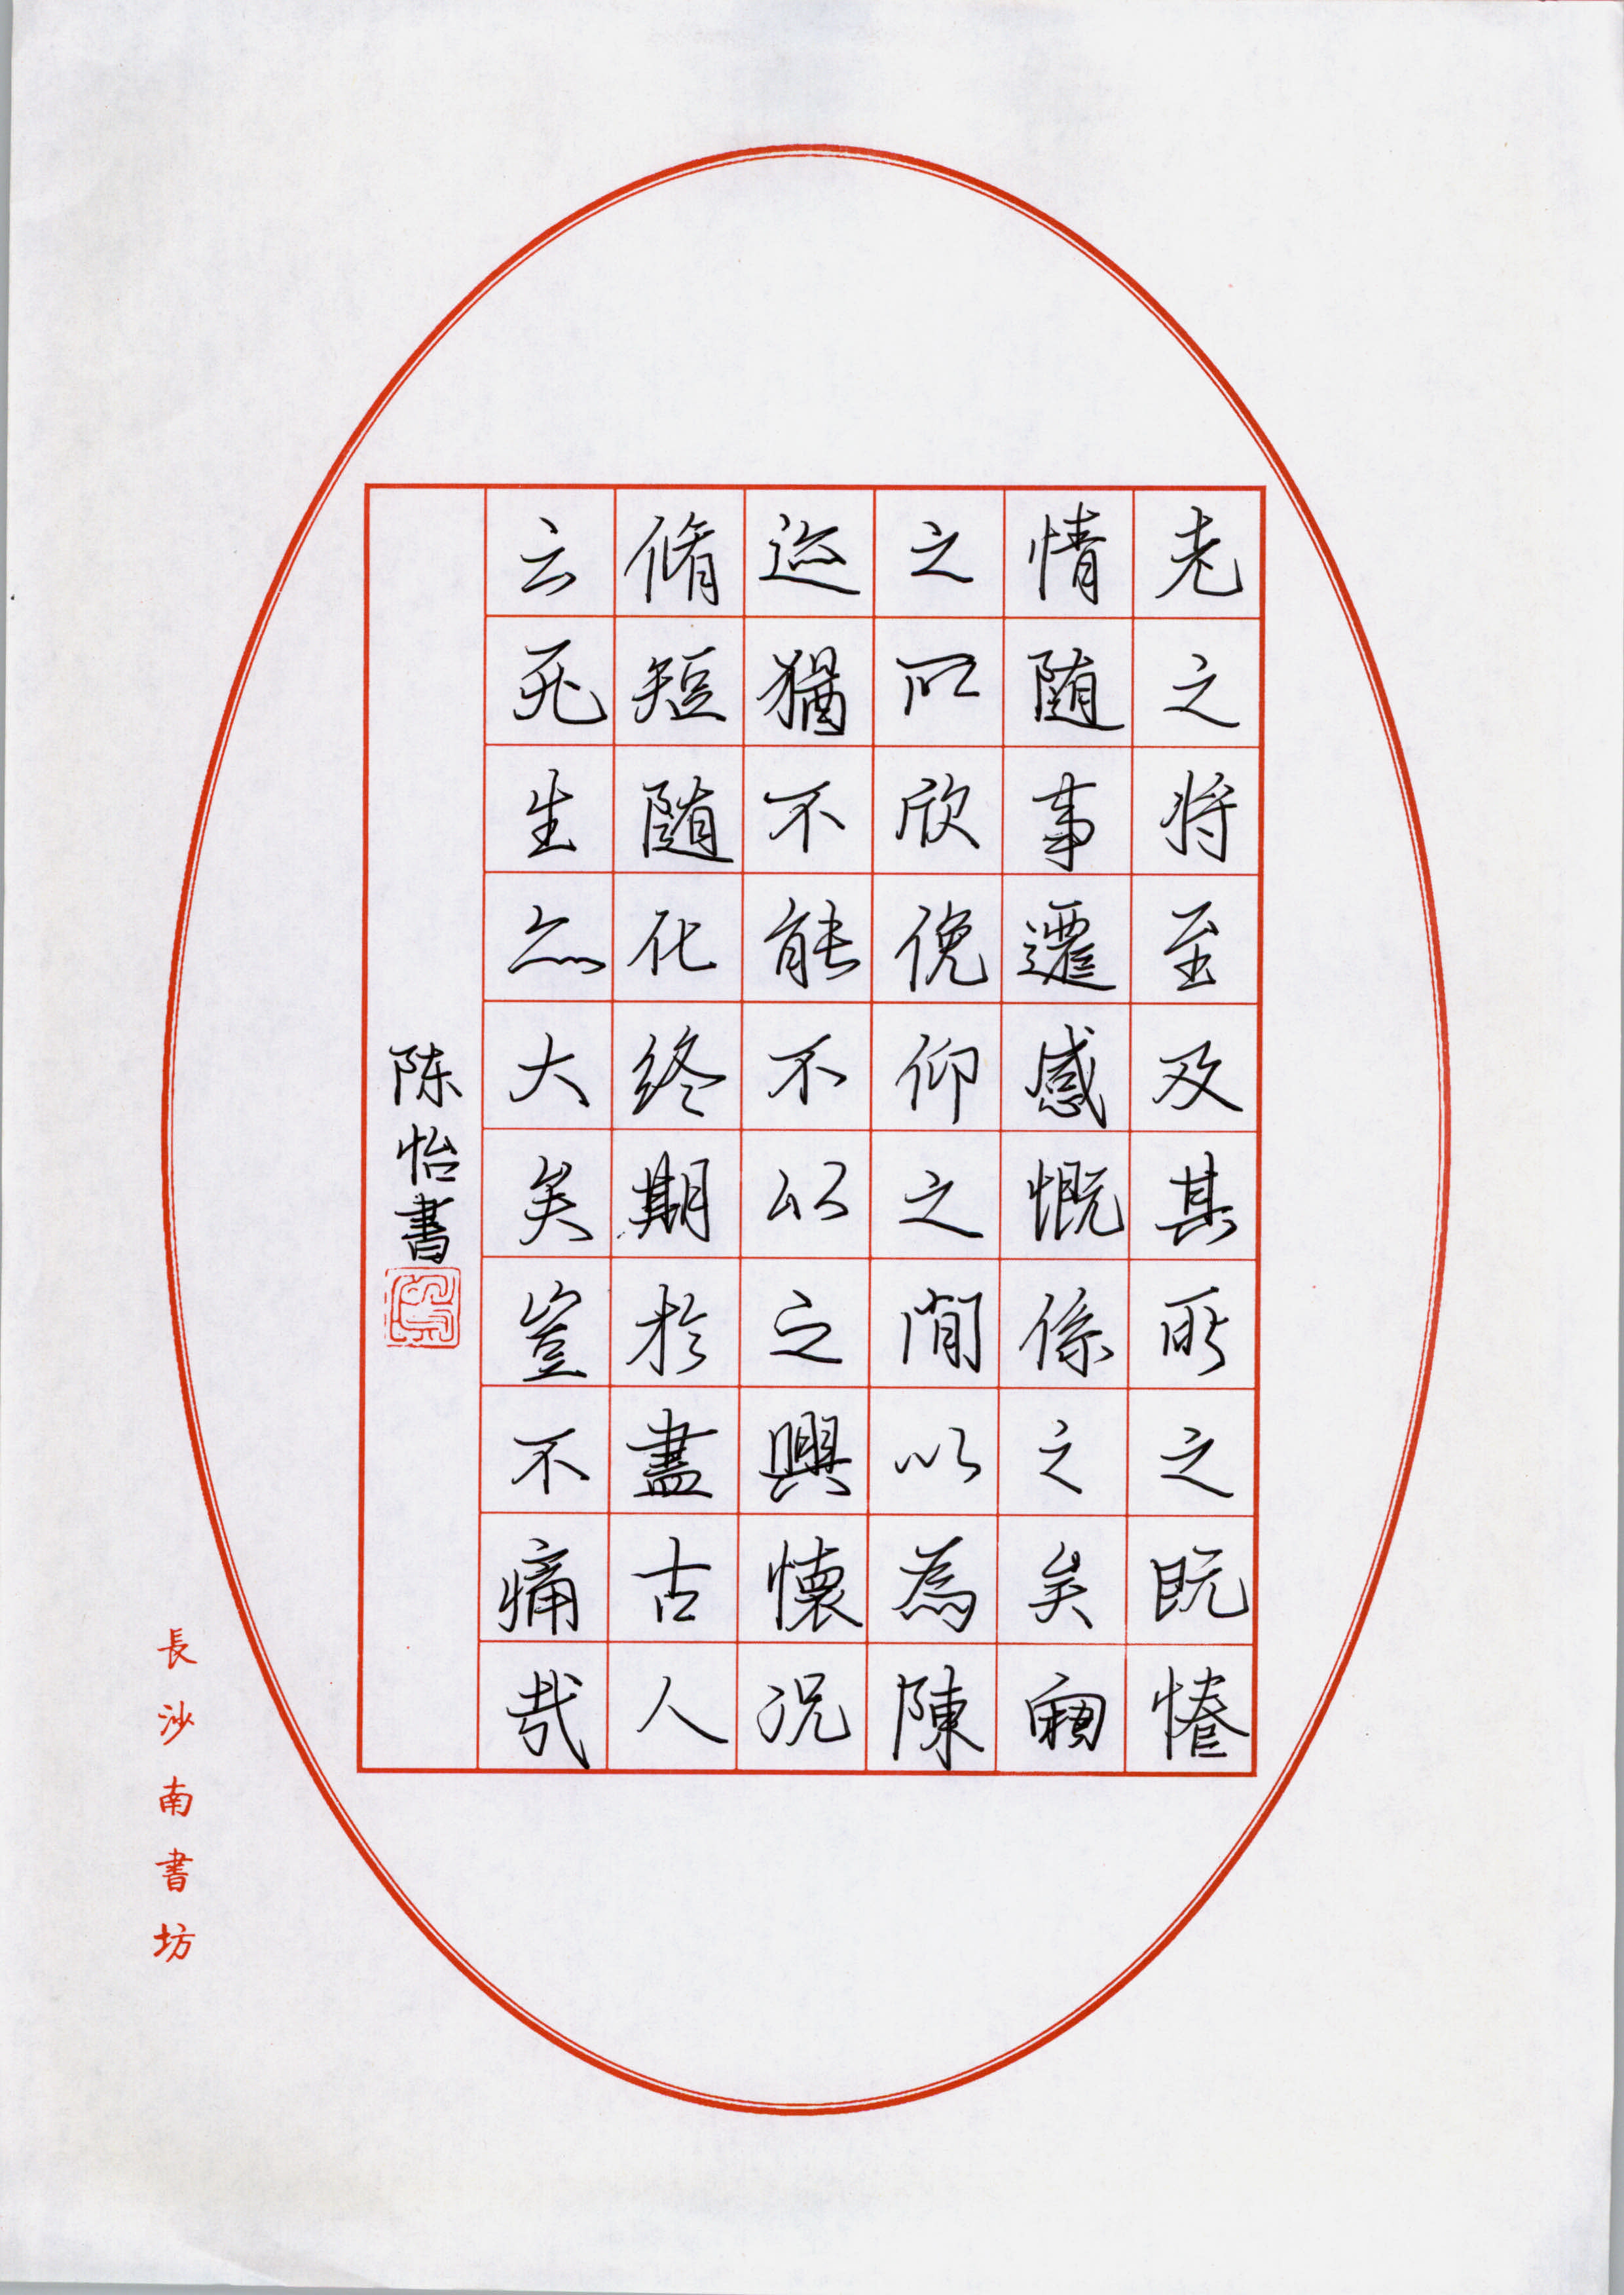 老之将至及其所之既惓
情随事遷感慨係之矣向
之所欣俛仰之間以為陳
迹猶不能不以之興懷况
脩短随化終期於盡古人
云死生亦大矣豈不痛哉
陈怡書
長沙南書坊